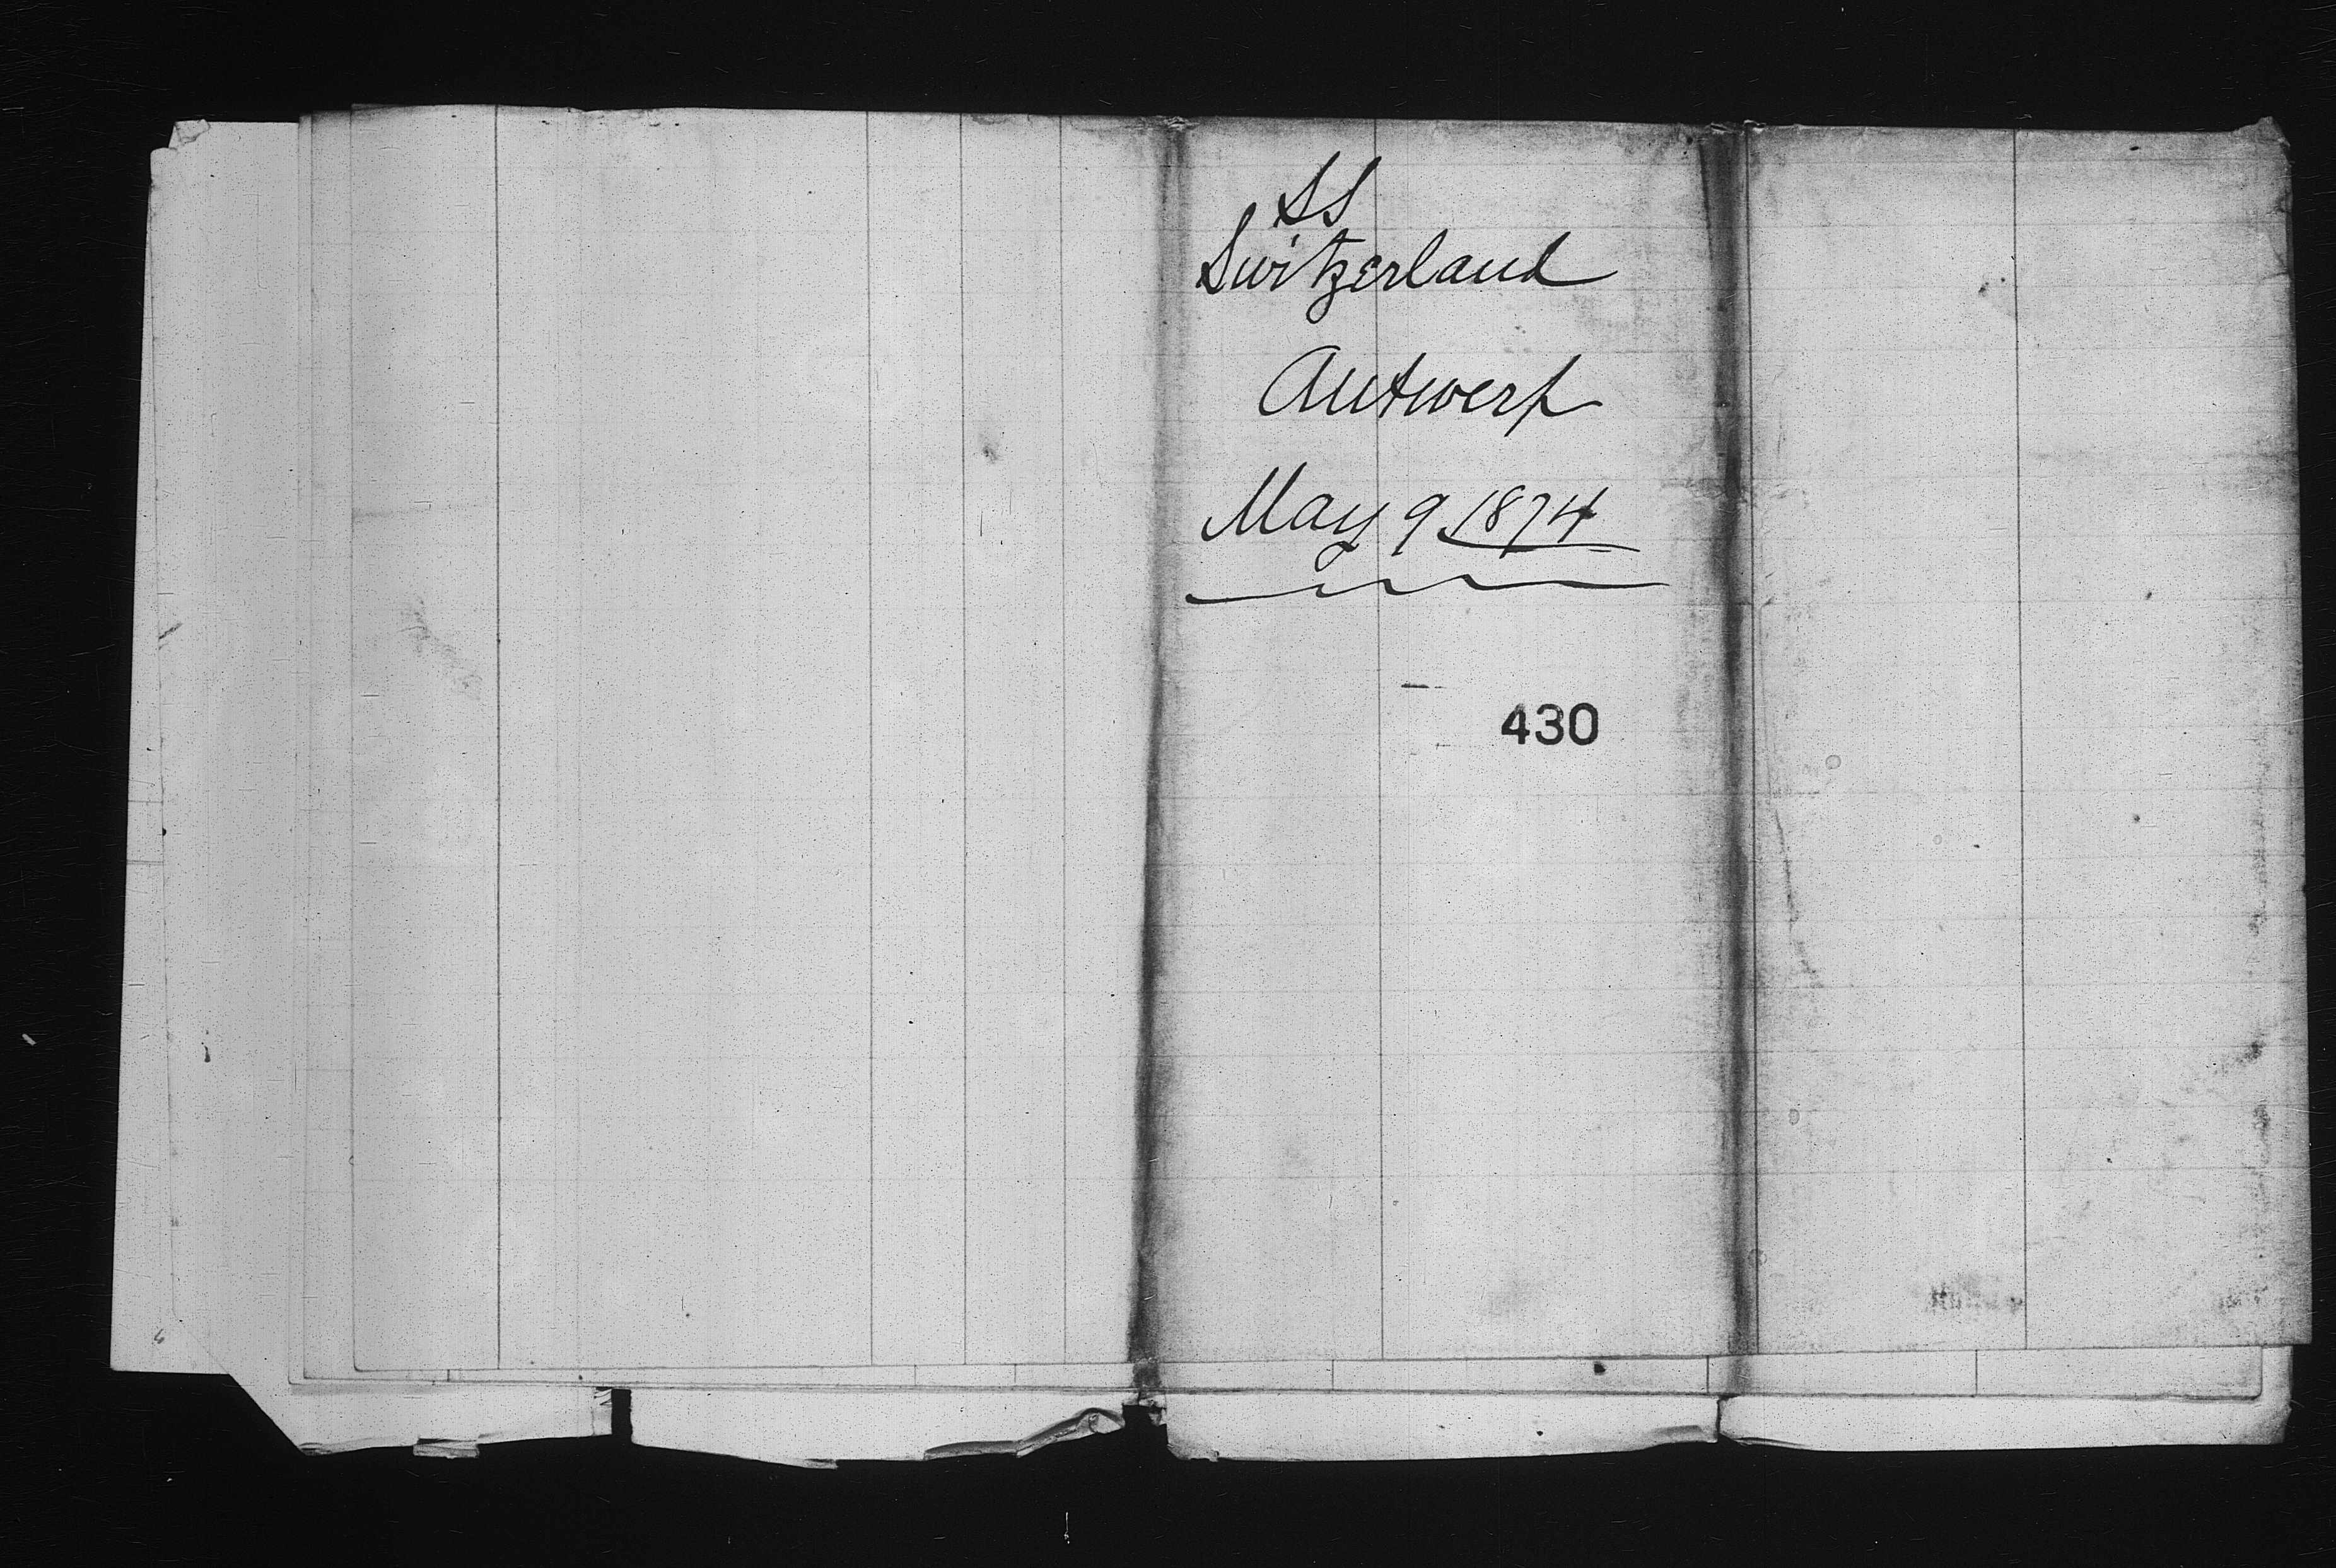 SS
Switzerland
Antwerp
May 9 1874
430